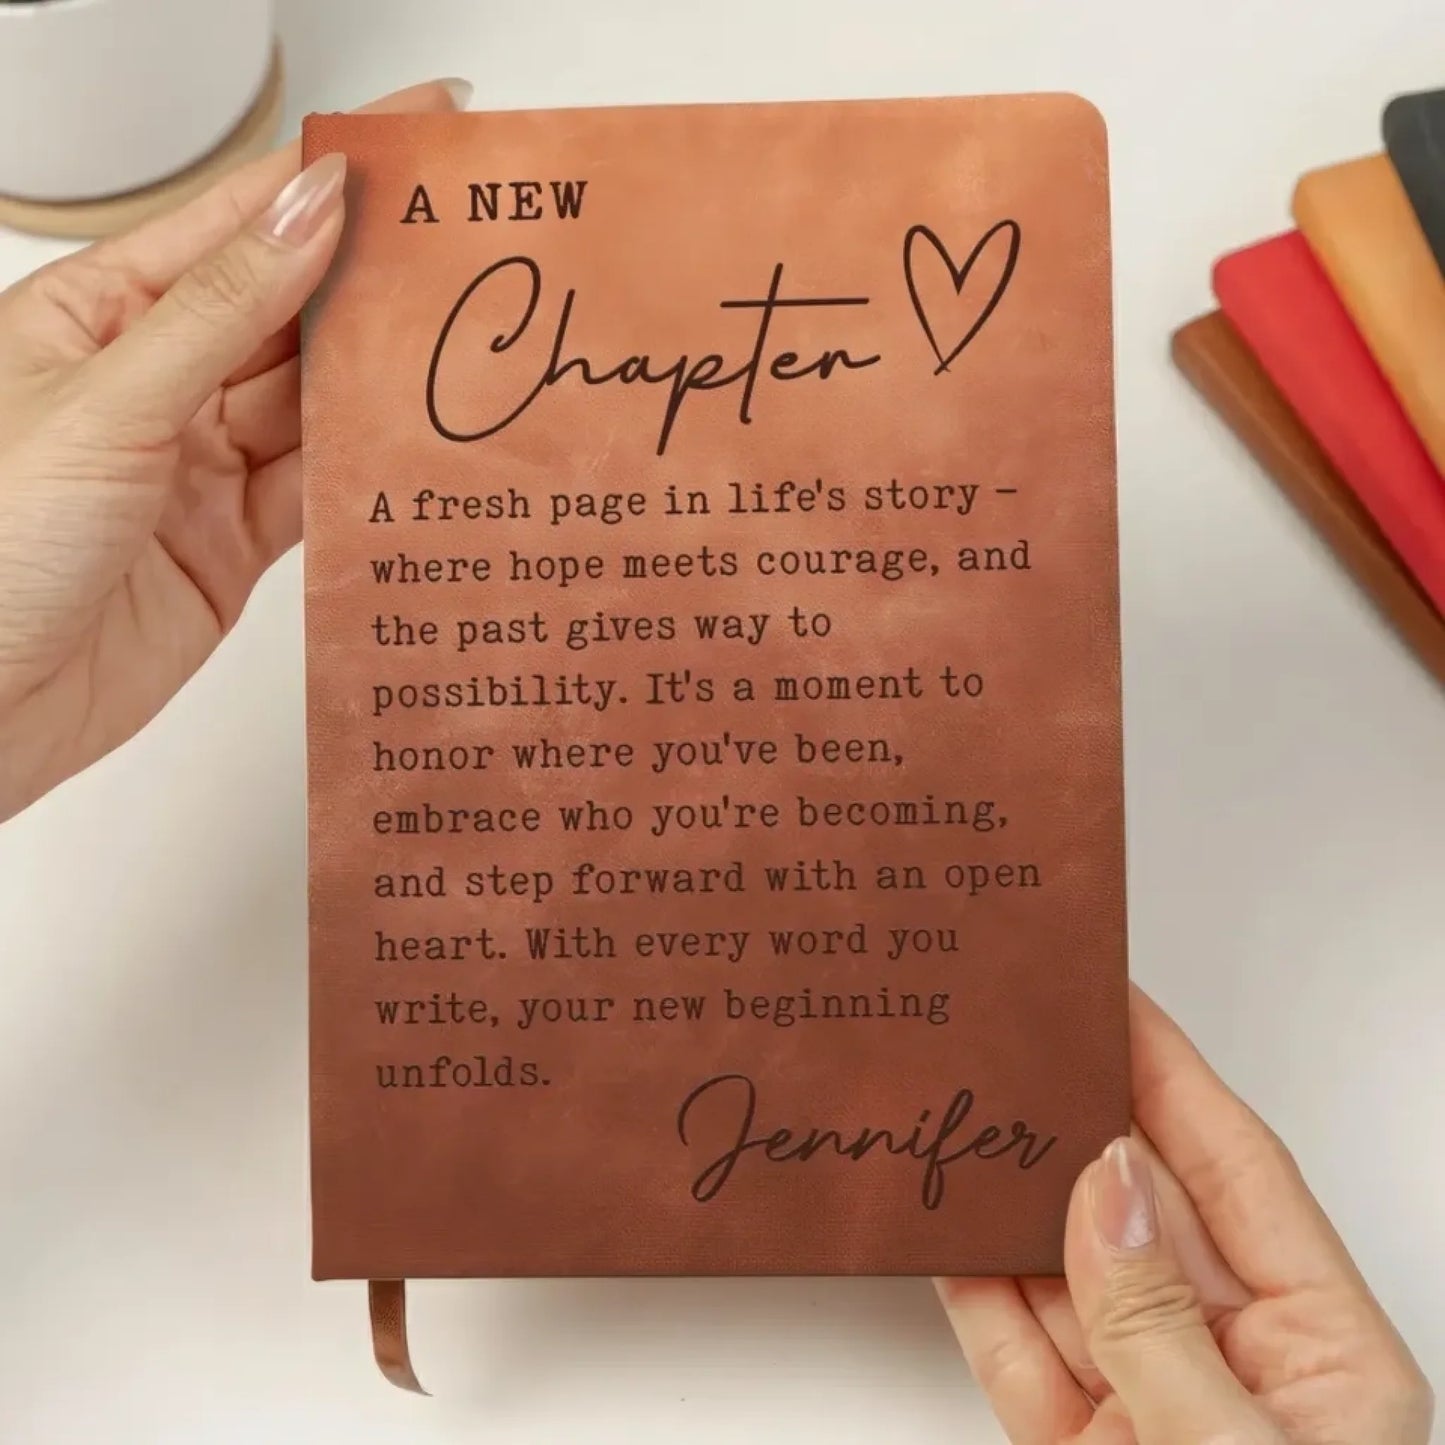 A NEW
Chapter
A fresh page in life's story –
where hope meets courage, and
the past gives way to
possibility. It's a moment to
honor where you've been,
embrace who you're becoming,
and step forward with an open
heart. With every word you
write, your new beginning
unfolds.
Jennifer